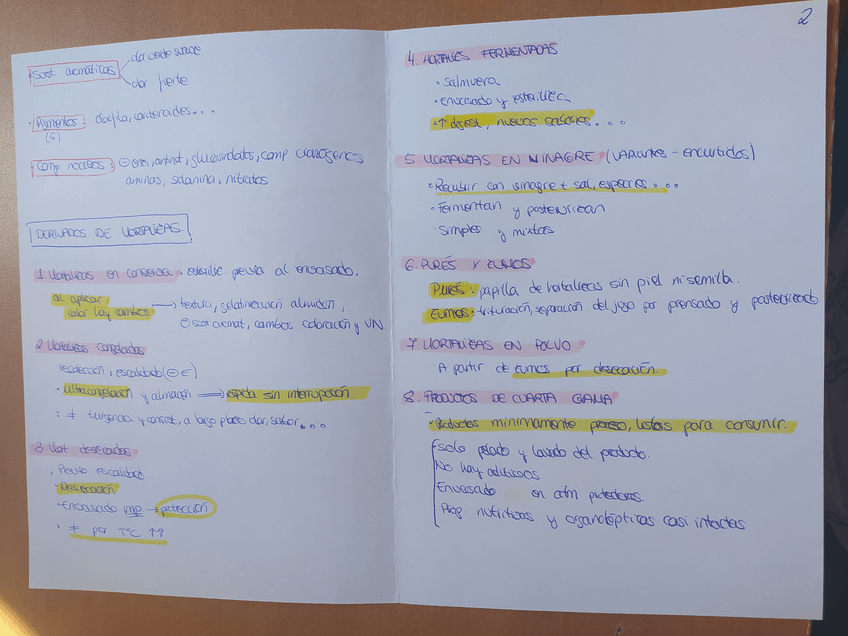 Sust aromáticas
olor verde suave
olor fuerte
· Pigmentos : clorofila, carotenoides...
(S)
Comp nocivos : antinut, glucosinolatos, comp cianógenos
aminas, solanina, nitratos
DERIVADOS DE HORTALIZAS
1 Hortalizas en conserva · esteriliz. previa al envasado.
al aplicar
calor hay cambios → textura, gelatinización almidón,
⊖ sust aromat, cambios coloración y VN.
2 Hortalizas congeladas
recolección, escaldado (⊖ E)
· ultracongelación y almacén ⟹ rápida sin interrupción
: ≠ turgencia y consist, a largo plazo olor, sabor...
3 Hort desecadas
· Previo escaldado
· Desecación
- Envasado imp → protección
· ≠ por TºC ↑↑
2
4. HORTALIZAS FERMENTADAS
· Salmuera
· Envasado y esteriliza
· ↑ digest, nuevos sabores...
5 HORTALIZAS EN VINAGRE (VARIANTES - ENCURTIDOS)
· Recubrir con vinagre + sal, especies...
· Fermentan y pasteurizan
· Simples y mixtas
6. PURÉS Y ZUMOS
PURÉS : papilla de hortalizas sin piel ni semilla.
ZUMOS : trituración, separación del jugo por prensado y pasteurizado
7 HORTALIZAS EN POLVO
· A partir de zumos por desecación.
8. PRODUCTOS DE CUARTA GAMA
· Productos minimamente proceso, listos para consumir.
Solo pelado y lavado del producto.
No hay aditivos
Envasado en atm protectoras
Prop. nutritivas y organolépticas casi intactas